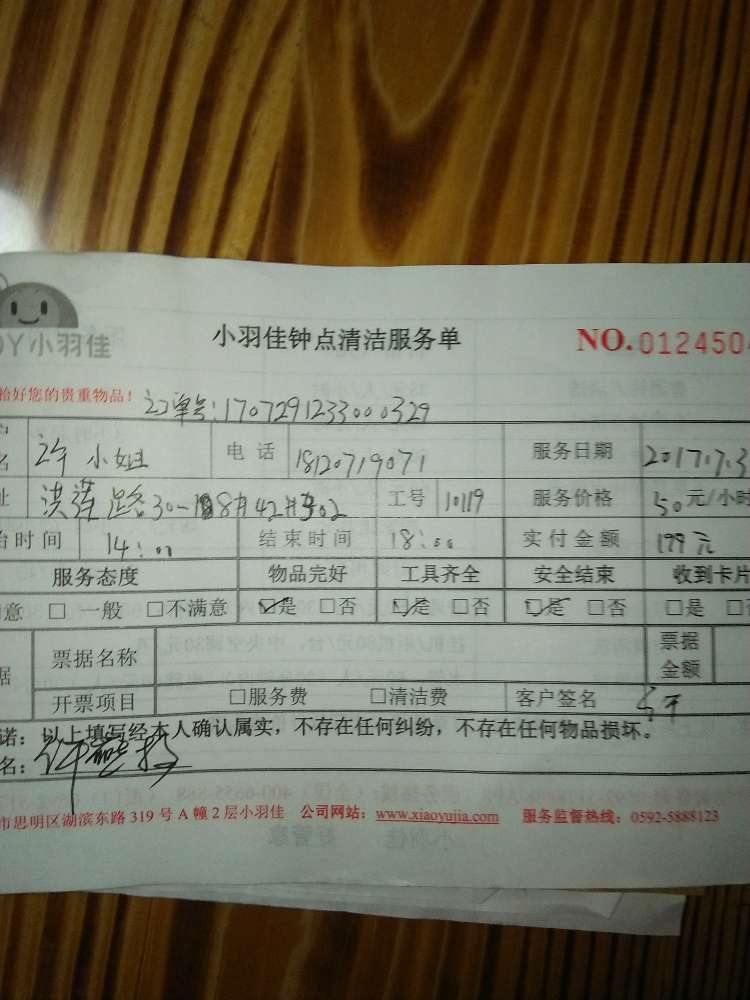 小羽佳钟点清洁服务单 NO.0124504
OY小羽佳
恰好您的贵重物品! 订单号:1707291233000329
户名 许小姐 电话 18120719071 服务日期 2017.7.3
址 洪莲路30-108#42#502 工号 10119 服务价格 50元/小时
始时间 14:00 结束时间 18:00 实付金额 199元
服务态度 物品完好 工具齐全 安全结束 收到卡片
意 □一般 □不满意 ☑是 □否 ☑是 □否 ☑是 □否 □是 □否
据 票据名称 票据金额
开票项目 □服务费 □清洁费 客户签名
诺:以上填写经本人确认属实,不存在任何纠纷,不存在任何物品损坏。
名:
市思明区湖滨东路319号A幢2层小羽佳 公司网站:www.xiaoyujia.com 服务监督热线:0592-5888123